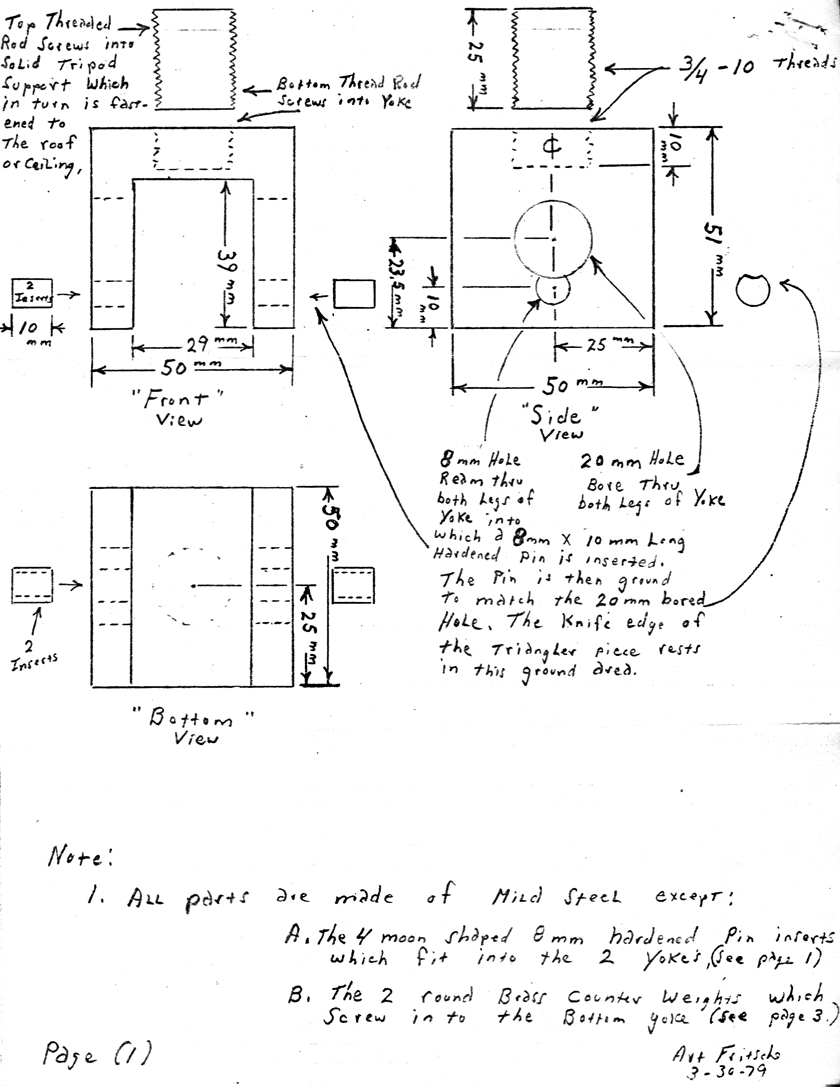 Top Threaded
Rod Screws into
Solid Tripod
Support Which
in turn is fast-
ened to
The roof
or Ceiling,
Bottom Thread Rod
Screws into Yoke
25 mm
3/4 - 10 threads
10 mm
51 mm
39 mm
23.5 mm
10 mm
2
Inserts
10
mm
29 mm
50 mm
25 mm
50 mm
"Front"
View
"Side"
View
8 mm Hole
Ream thru
both Legs of
Yoke into
which a 8mm X 10 mm Long
Hardened Pin is inserted.
The Pin is then ground
to match the 20 mm bored
Hole. The Knife edge of
the Triangler piece rests
in this ground area.
20 mm Hole
Bore Thru
both Legs of Yoke
50 mm
25 mm
2
Inserts
"Bottom"
View
Note:
1. ALL parts are made of Mild Steel except:
A. The 4 moon shaped 8mm hardened Pin inserts
which fit into the 2 Yokes, (see page 1)
B. The 2 round Brass Counter Weights which
Screw in to the Bottom yoke (see page 3.)
Page (1)
Art Fritsch
3-30-79